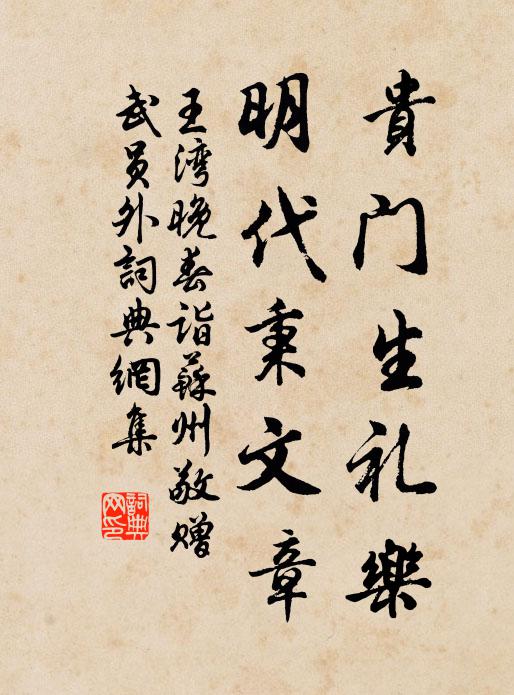 貴門生礼樂
明代秉文章
王湾晚春詣蘇州敬贈
武員外詞典網集
詞典
网印